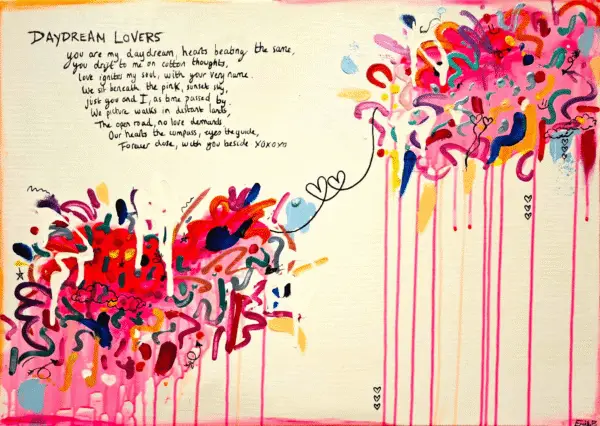 DAYDREAM LOVERS
you are my daydream, hearts beating the same,
you drift to me on cotton thoughts,
love ignites my soul, with your very name.
We sit beneath the pink, sunset sky,
just you and I, as time passed by.
We picture walks in distant lands,
The open road, no love demands.
Our hearts the compass, eyes the guide,
Forever close, with you beside xoxoxo